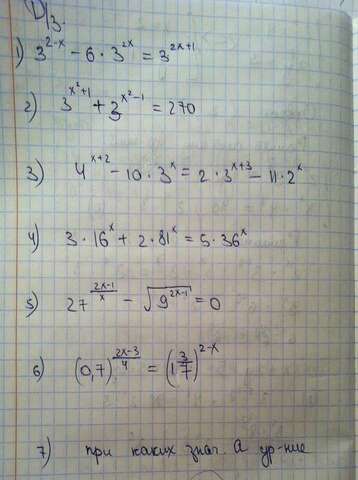 D/з.
1) 3^{2-x} - 6 · 3^{2x} = 3^{2x+1}
2) 3^{x²+1} + 3^{x²-1} = 270
3) 4^{x+2} - 10 · 3^x = 2 · 3^{x+3} - 11 · 2^x
4) 3 · 16^x + 2 · 81^x = 5 · 36^x
5) 27^{\frac{2x-1}{x}} - \sqrt{9^{2x-1}} = 0
6) (0,7)^{\frac{2x-3}{4}} = (1\frac{3}{7})^{2-x}
7) при каких знач. а ур-ние